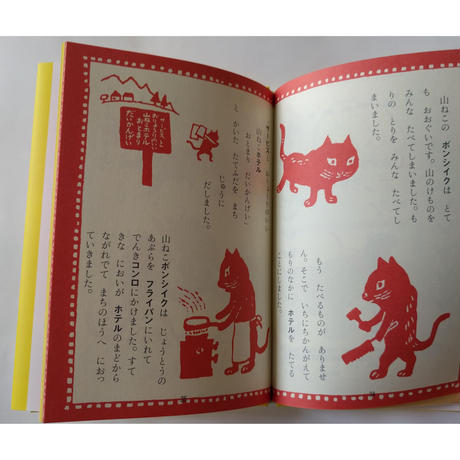 山ねこの ボンシイクは とて
も おおぐいです。山のけものを
みんな たべてしまいました。も
りの とりを みんな たべてし
まいました。
もう たべるものが ありませ
ん。そこで いちにちかんがえて
もりのなかに ホテルを たてる
ことにしました。
山ねこホテル
おとまり だいかんげい」
と かいた たてふだを まち
じゅうに
だしました。
サービスと
おりょうりのいい
山ねこホテル
おとまり
だいかんげい
山ねこボンシイクは じょうとうの
あぶらを フライパンにいれて
でんきコンロにかけました。すて
きな においが ホテルのまどから
ながれでて まちのほうへ におっ
ていきました。